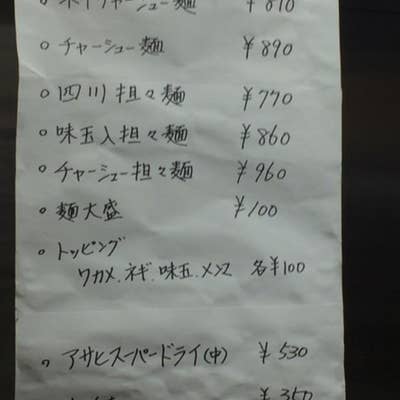 チャーシュー麺 ¥810
○ チャーシュー麺 ¥890
○ 四川担々麺 ¥770
○ 味玉入担々麺 ¥860
○ チャーシュー担々麺 ¥960
○ 麺大盛 ¥100
○ トッピング
ワカメ、ネギ、味玉、メンマ 各¥100
○ アサヒスーパードライ(中) ¥530
¥350